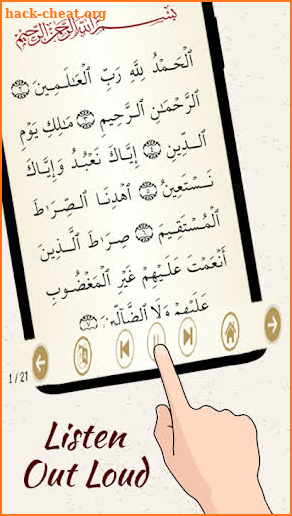 hack-cheat.org
بِسْمِ ٱللَّهِ ٱلرَّحْمَٰنِ ٱلرَّحِيمِ
ٱلْحَمْدُ لِلَّهِ رَبِّ ٱلْعَٰلَمِينَ ٢
ٱلرَّحْمَٰنِ ٱلرَّحِيمِ ٣ مَٰلِكِ يَوْمِ
ٱلدِّينِ ٤ إِيَّاكَ نَعْبُدُ وَإِيَّاكَ
نَسْتَعِينُ ٥ ٱهْدِنَا ٱلصِّرَٰطَ
ٱلْمُسْتَقِيمَ ٦ صِرَٰطَ ٱلَّذِينَ
أَنْعَمْتَ عَلَيْهِمْ غَيْرِ ٱلْمَغْضُوبِ
عَلَيْهِمْ وَلَا ٱلضَّآلِّينَ ٧
1 / 21
Listen
Out Loud
hack-cheat.org